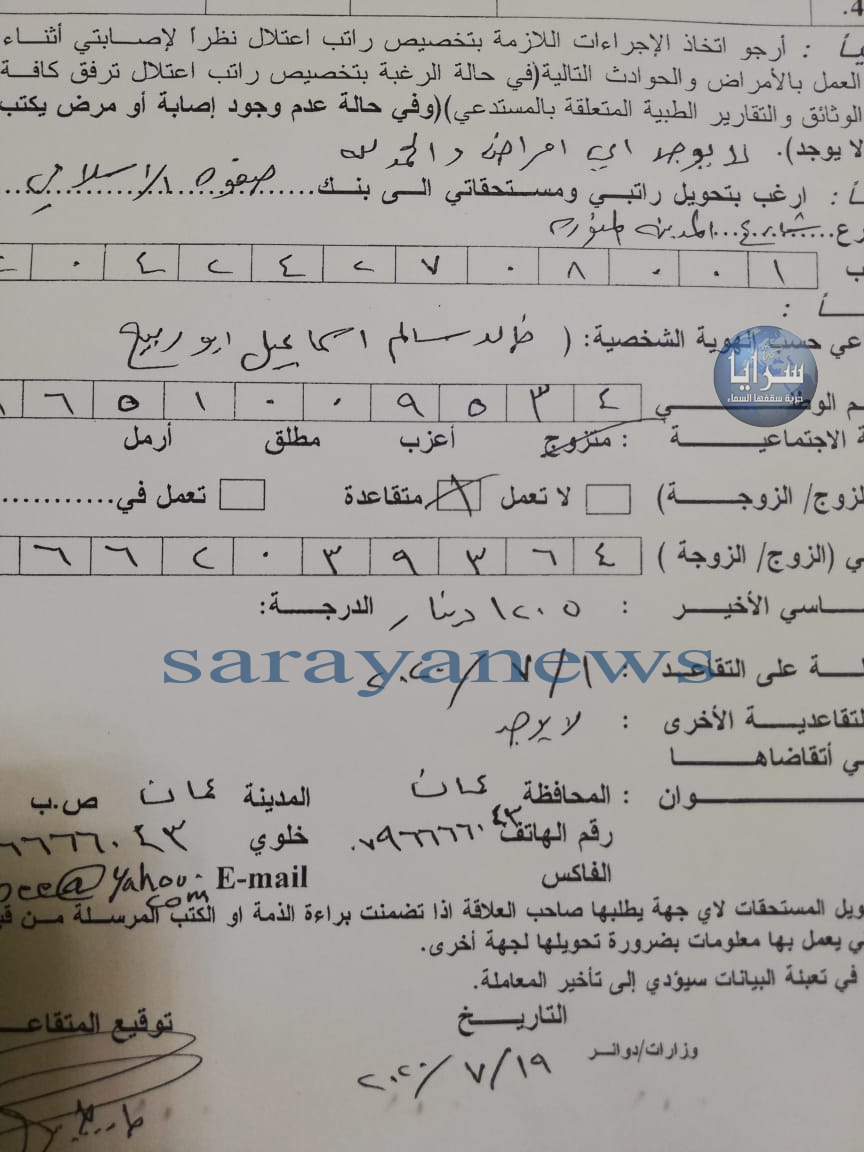 4.
يـاً : أرجو اتخاذ الإجراءات اللازمة بتخصيص راتب اعتلال نظراً لإصابتي أثنـاء
العمل بالأمراض والحوادث التالية(في حالة الرغبة بتخصيص راتب اعتلال ترفق كافـة
الوثائق والتقارير الطبية المتعلقة بالمستدعي)(وفي حالة عدم وجود إصابة أو مرض يكتب
لا يوجد). لا يوجد اي امراض والحمد لله
ـاً : ارغب بتحويل راتبي ومستحقاتي الـى بنـك صفوة الاسلامي
رع شارع المدينة المنورة
ب ١ ٠ ٠ ٨ ٠ ٧ ٢ ٤ ٢ ٤ ٠
ـاً :
عي حسب الهوية الشخصية: ( خالد سالم اسماعيل ابو ربيع
سرايا
حرية سقفها السماء
ـي ٤ ٣ ٥ ٩ ٠ ٠ ١ ٥ ٦
ة الاجتماعيـــة : متزوج أعزب مطلق أرمل
لزوج/ الزوجـــة) لا تعمل متقاعدة تعمل في
ي (الزوج/ الزوجة ) ٤ ٦ ٣ ٩ ٣ ٠ ٢ ٦ ٦ ٦
ـاسي الأخيـــر : ١٢٠٥ دينار الدرجـة:
sarayanews
ـة على التقاعـــد : ١/٧/٢٠٢٠
لتقاعديـــة الأخرى : لا يوجد
ي أتقاضاهـــا
ـــوان : المحافظة عمان المدينة عمان ص.ب
رقم الهاتف ٠٧٩٦٦٦٦٠٤٣ خلوي ٦٦٦٦٠٤٣
الفاكس E-mail @yahoo.com
ويل المستحقات لاي جهة يطلبها صاحب العلاقة اذا تضمنت براءة الذمة او الكتب المرسلة مـن
ي يعمل بها معلومات بضرورة تحويلها لجهة أخرى.
في تعبئة البيانات سيؤدي إلى تأخير المعاملة.
التاريـــخ توقيع المتقاعـ
وزارات/دوائـر
١٩/٧/٢٠٢٠